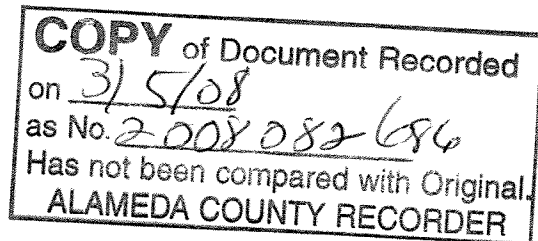 COPY of Document Recorded
on 3/5/08
as No. 2008082686
Has not been compared with Original.
ALAMEDA COUNTY RECORDER